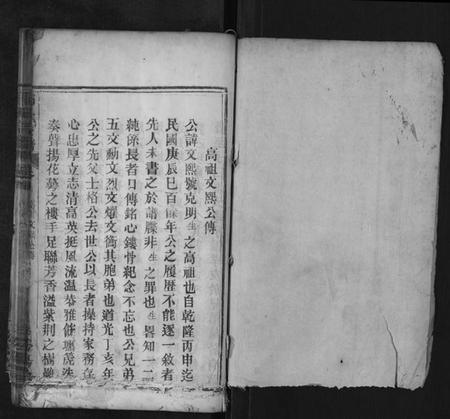 高祖文熙公傳
公諱文熙號克明生之高祖也自乾隆丙申迄
民國庚辰巳百餘年公之履歷不能逐一敘者
先人未書之於譜牒非生之罪也生畧知一二
純係長者口傳銘心鏤骨紀念不忘也公兄弟
五文勳文烈文耀文衡其胞弟也道光丁亥年
公之先父士格公去世公以長者操持家務在
心忠厚立志清高英挺風流溫恭雅
奏聲揚花萼之樓手足聯芳香溢紫荊之樹